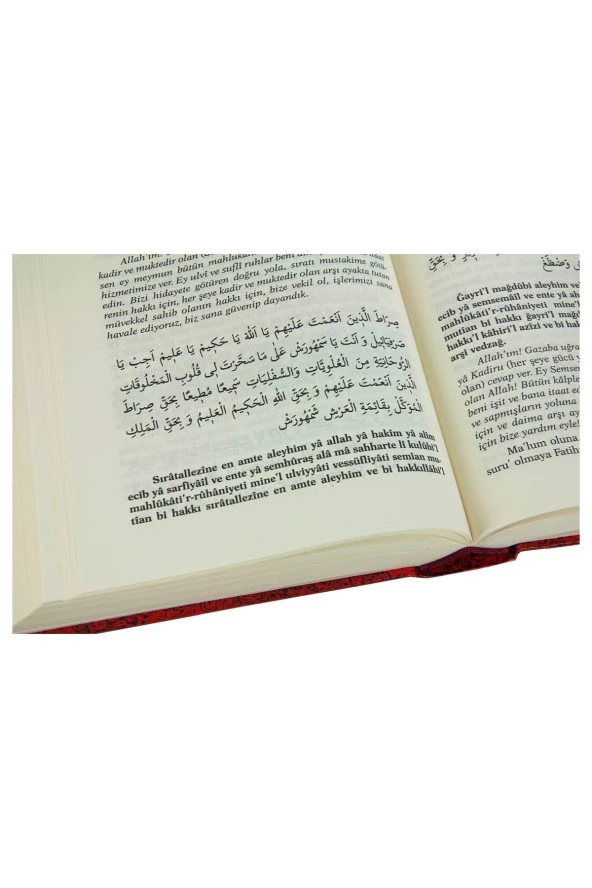 Allah'ım!
kadir ve muktedir olan
sen ey meymun bütün mahlukat
hizmetimize ver. Ey ulvî ve suflî ruhlar beni
edin. Bizi hidayete götüren doğru yola, sıratı mustakime götü-
renin hakkı için, her şeye kadir ve muktedir olan arşı ayakta tutan
müvekkel sahib olanın hakkı için, bize vekil ol, işlerimizi sana
havale ediyoruz, biz sana güvenip dayandık.
صِرَاطَ الَّذ۪ينَ اَنْعَمْتَ عَلَيْهِمْ يَا اَللّٰهُ يَا حَك۪يمُ يَا عَل۪يمُ اَجِبْ يَا
صَرْفَيَائ۪يلُ وَ اَنْتَ يَا سَمْهُورَشُ عَلٰى مَا سَخَّرْتَ ل۪ى قُلُوبَ الْمَخْلُوقَاتِ
الرُّوحَانِيَّةِ مِنَ الْعُلْوِيَّاتِ وَالسُّفْلِيَّاتِ سَم۪يعًا مُط۪يعًا بِحَقِّ صِرَاطَ
الَّذ۪ينَ اَنْعَمْتَ عَلَيْهِمْ وَ بِحَقِّ اللّٰهِ الْحَك۪يمُ الْعَل۪يمُ وَ بِحَقِّ الْمَلِكِ
الْمُوَكَّلِ بِقَائِمَةِ الْعَرْشِ شَمْهُورَشْ
Sırâtallezîne en amte aleyhim yâ allah yâ hakîm yâ alîm
ecib yâ sarfiyâil ve ente yâ semhûraş alâ mâ sahharte lî kulûbi'l
mahlûkâti'r-rûhâniyeti mine'l ulviyyâti vessüfliyâti semian mu-
tîan bi hakkı sırâtallezîne en amte aleyhim ve bi hakkıllâhi'l
وَ بِحَقِّ
Ğayri'l mağdûbi aleyhim ve
ecib yâ semsemâil ve ente yâ ah
mahlûkâti'r-rûhâniyeti mine'l
mutîan bi hakkı ğayri'l mağd
hakkı'l kâhiri'l azîzi ve bi hak
arşî vedzağ.
Allah'ım! Gazaba uğra
yâ Kadiru (her şeye gücü y
olan) cevap ver. Ey Semsem
olan Allah! Bütün kâlple
beni işit ve bana itaat ed
ve sapmışların yoluna
için ve daima arşı ay
için bize yardım eyle!
Ma'lum oluna
suru' olmaya Fatih